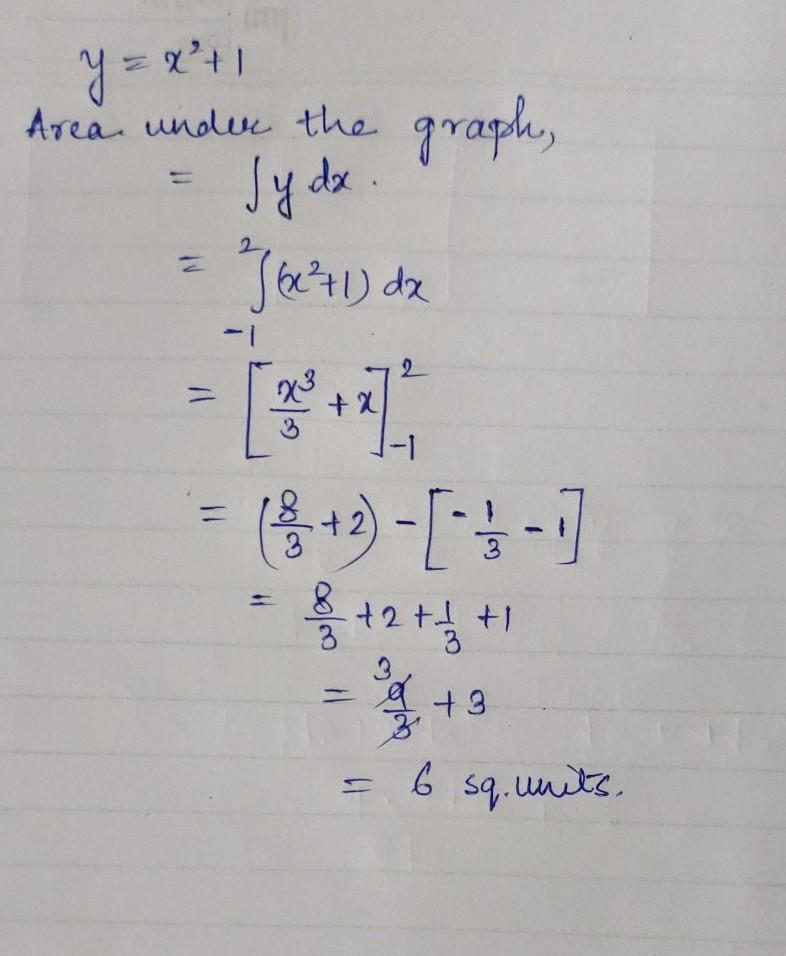 y = x²+1
Area under the graph,
= ∫y dx.
= ²∫₋₁(x²+1) dx
= [x³/3 + x]²₋₁
= (8/3 +2) - [-1/3 - 1]
= 8/3 +2 +1/3 +1
= 9/3 3 + 3
= 6 sq.units.